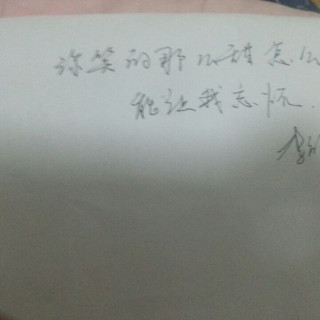 你笑的那么甜怎么
能让我忘怀.
李